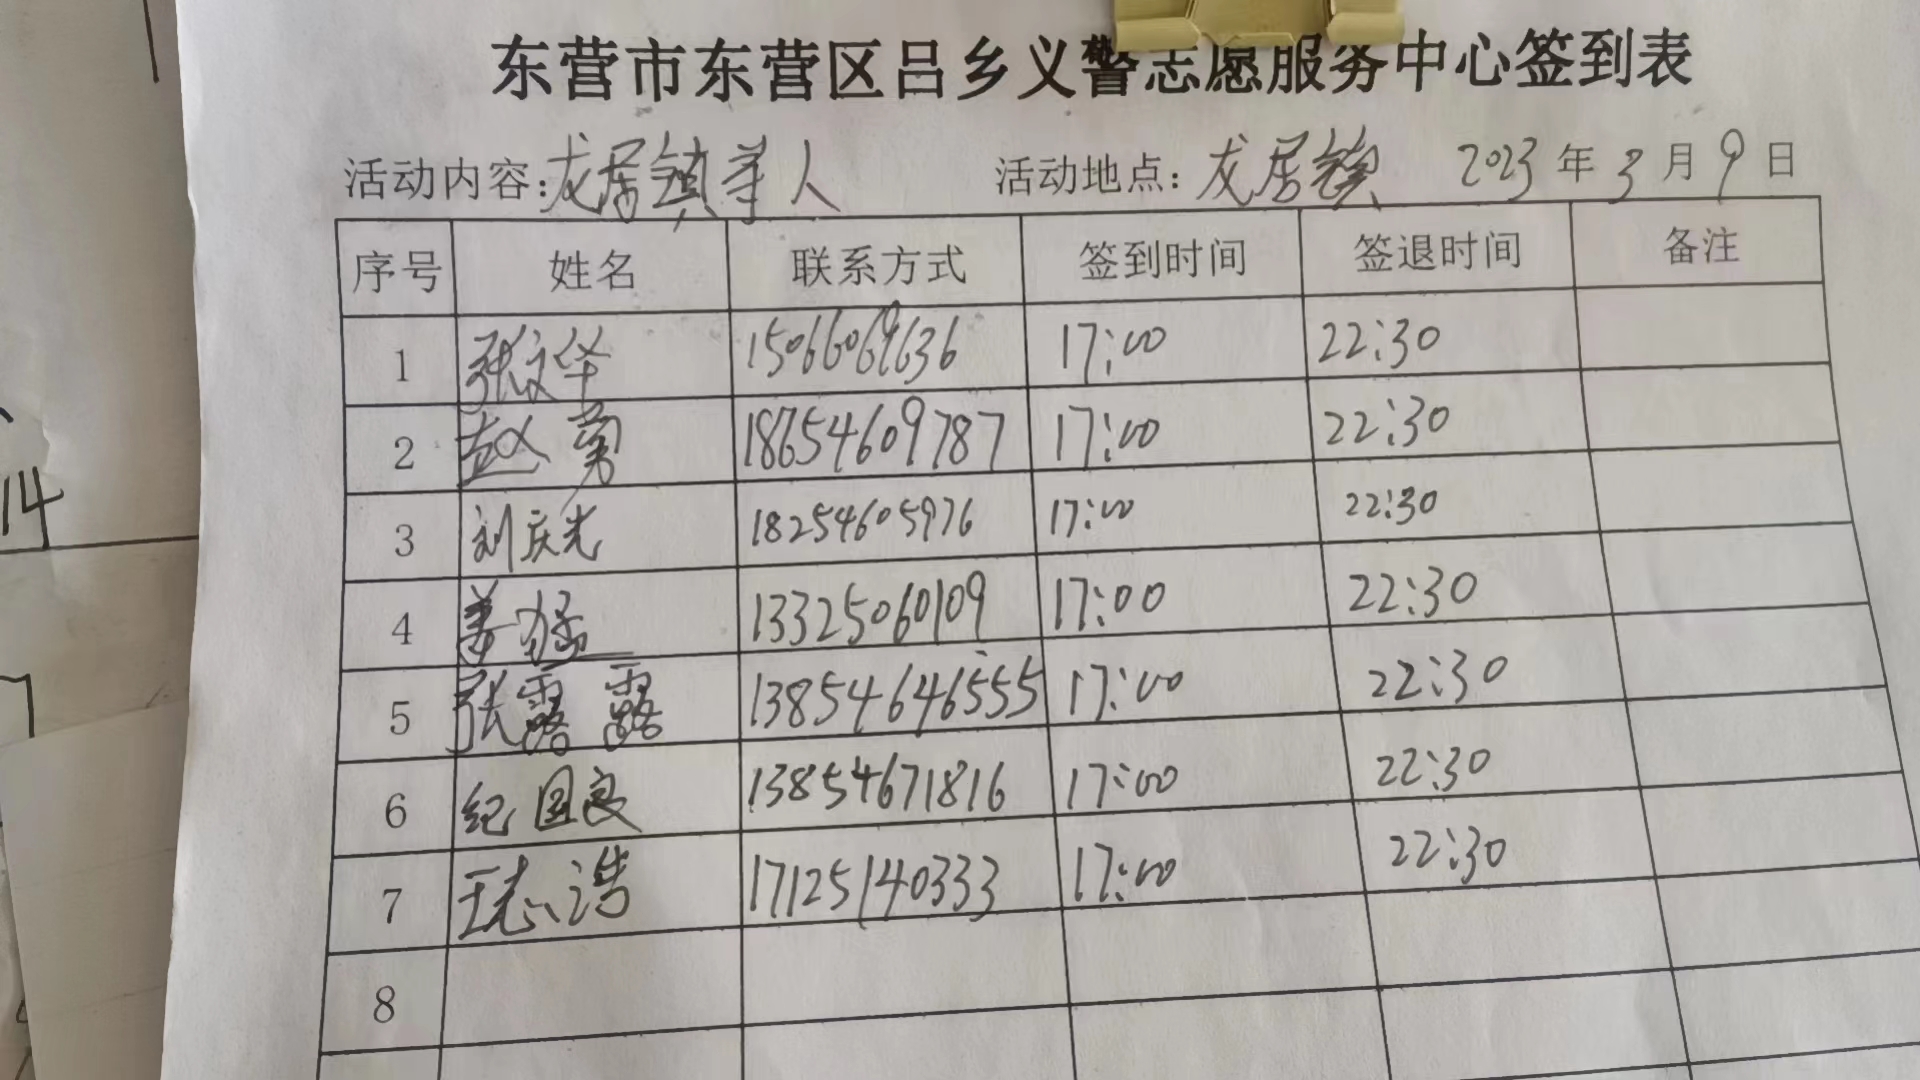 东营市东营区吕乡义警志愿服务中心签到表
活动内容:龙居镇寻人 活动地点:龙居镇 2023年3月9日
序号 姓名 联系方式 签到时间 签退时间 备注
1 张文华 15066069636 17:00 22:30
2 赵勇 18654609787 17:00 22:30
3 刘庆光 18254605976 17:00 22:30
4 姜猛 13325060109 17:00 22:30
5 张露露 13854646555 17:00 22:30
6 纪国良 13854671816 17:00 22:30
7 王志浩 17125140333 17:00 22:30
8
14